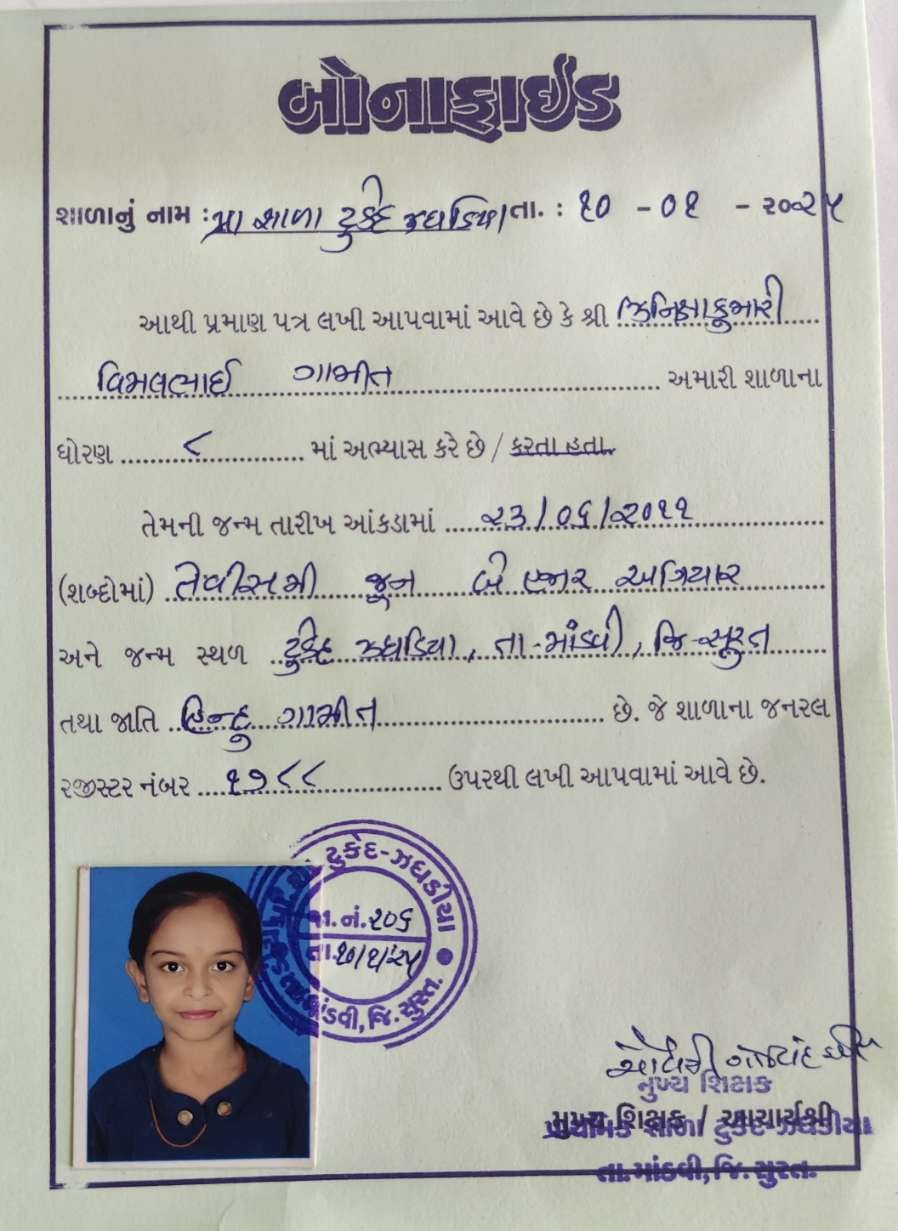 બોનાફાઈડ
શાળાનું નામ : પ્રા શાળા ટુકેદ ઝઘડિયા તા. : ૧૦ - ૦૧ - ૨૦૨૫
આથી પ્રમાણ પત્ર લખી આપવામાં આવે છે કે શ્રી ઝિનિક્ષાકુમારી
વિમલભાઈ ગામીત અમારી શાળાના
ધોરણ ૮ માં અભ્યાસ કરે છે / કરતા હતા.
તેમની જન્મ તારીખ આંકડામાં ૨૩/૦૬/૨૦૧૧
(શબ્દોમાં) તેવીસમી જૂન બે હજાર અગિયાર
અને જન્મ સ્થળ ટુકેદ ઝઘડિયા, તા-માંડવી, જિ-સૂરત
તથા જાતિ હિન્દુ ગામીત છે. જે શાળાના જનરલ
રજીસ્ટર નંબર ૧૭૮૮ ઉપરથી લખી આપવામાં આવે છે.
ટુકેદ-ઝઘડીયા
જા.નં.૨૦૬
તા.૧૦/૧/૨૫
તા.માંડવી, જિ.સુરત.
મુખ્ય શિક્ષક
મુખ્ય શિક્ષક / આચાર્યશ્રી
પ્રાથમિક શાળા ટુકેદ-ઝઘડીયા
તા.માંડવી, જિ.સુરત.